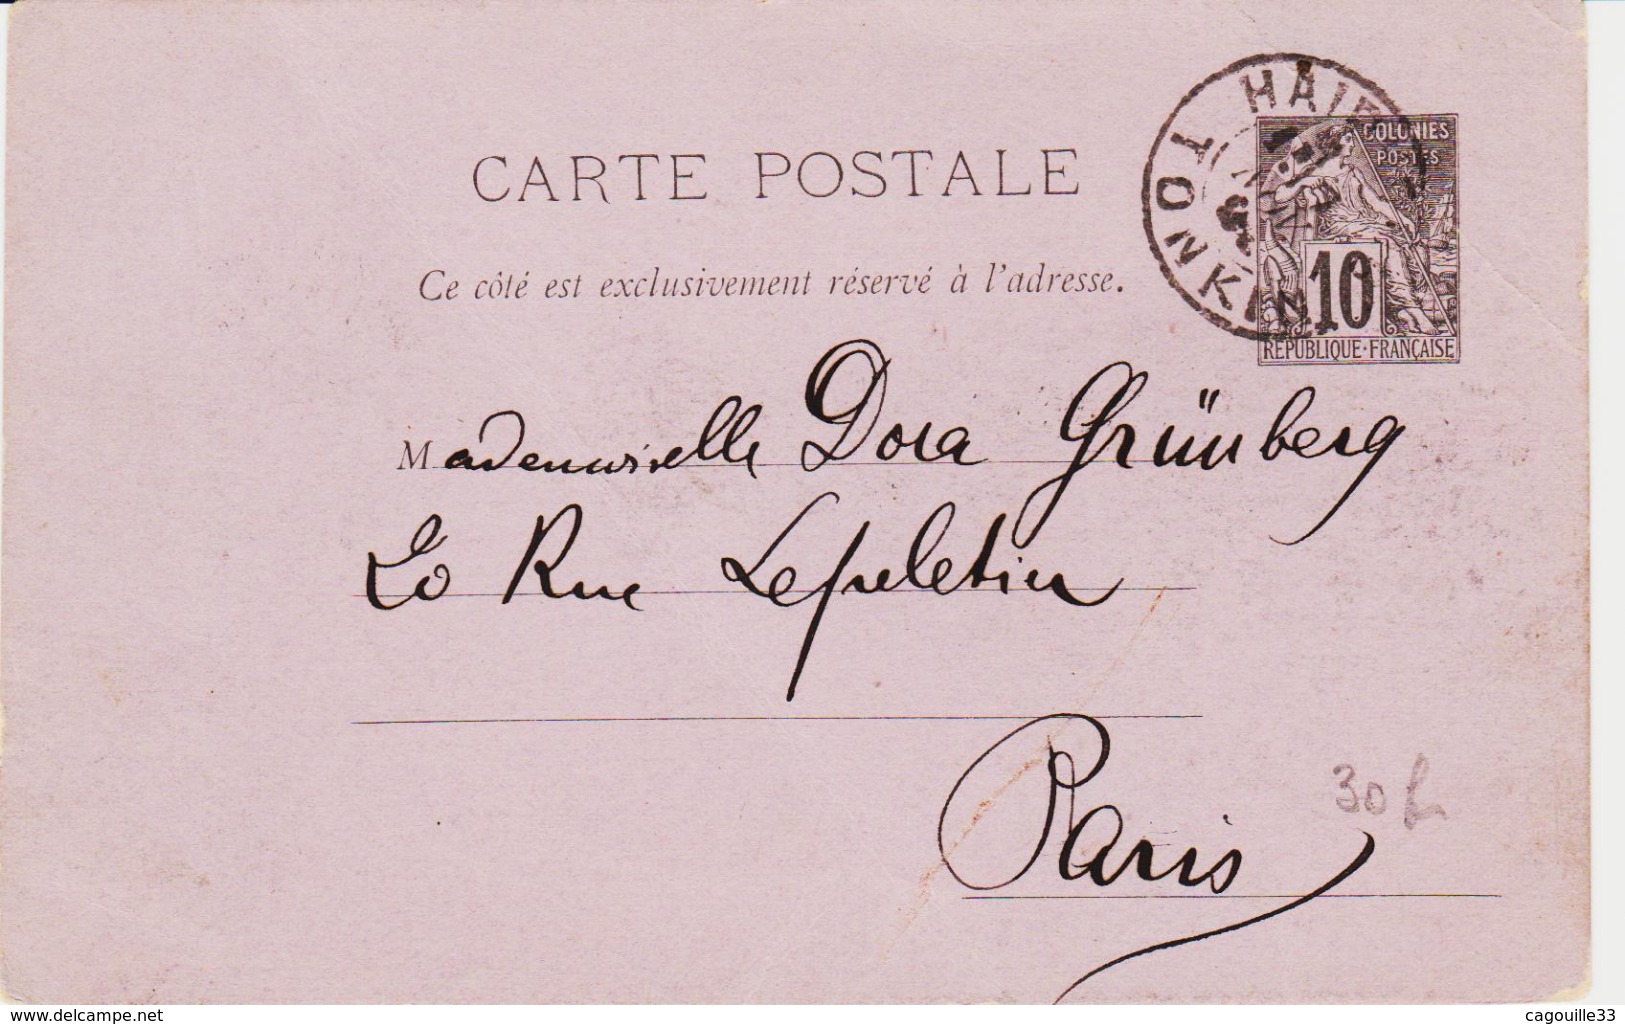 HAI
TONKIN
COLONIES
POSTES
10
REPUBLIQUE·FRANÇAISE
CARTE POSTALE
Ce côté est exclusivement réservé à l'adresse.
Mademoiselle Dora Grünberg
Rue Lepeletier
Paris
30
www.delcampe.net
cagouille33